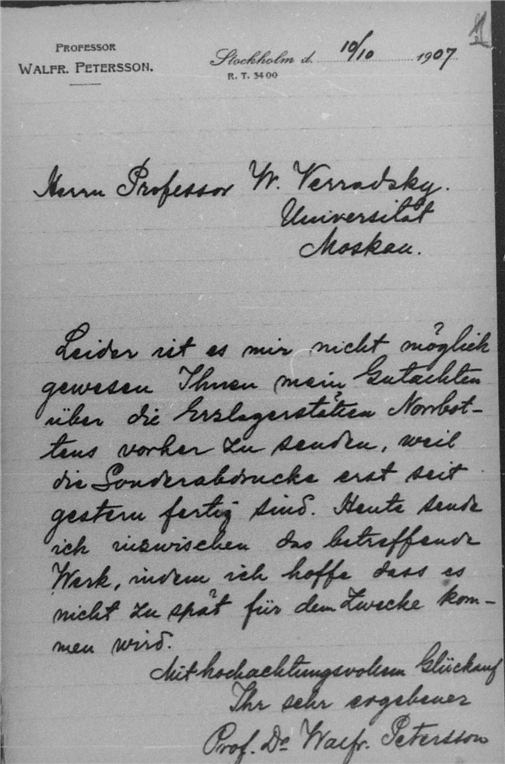 1
PROFESSOR
WALFR. PETERSSON.
Stockholm d. 10/10 1907
R. T. 3400
Herrn Professor W. Verradsky.
Universität
Moskau.
Leider ist es mir nicht möglich
gewesen Ihnen mein Gutachten
über die Erzlagerstätten Norrbot-
tens vorher zu senden, weil
die Sonderabdrucke erst seit
gestern fertig sind. Heute sende
ich inzwischen das betreffende
Werk, indem ich hoffe dass es
nicht zu spät für dem Zwecke kom-
men wird.
Mit hochachtungsvollem Glückauf
Ihr sehr ergebener
Prof. Dr Walfr. Petersson